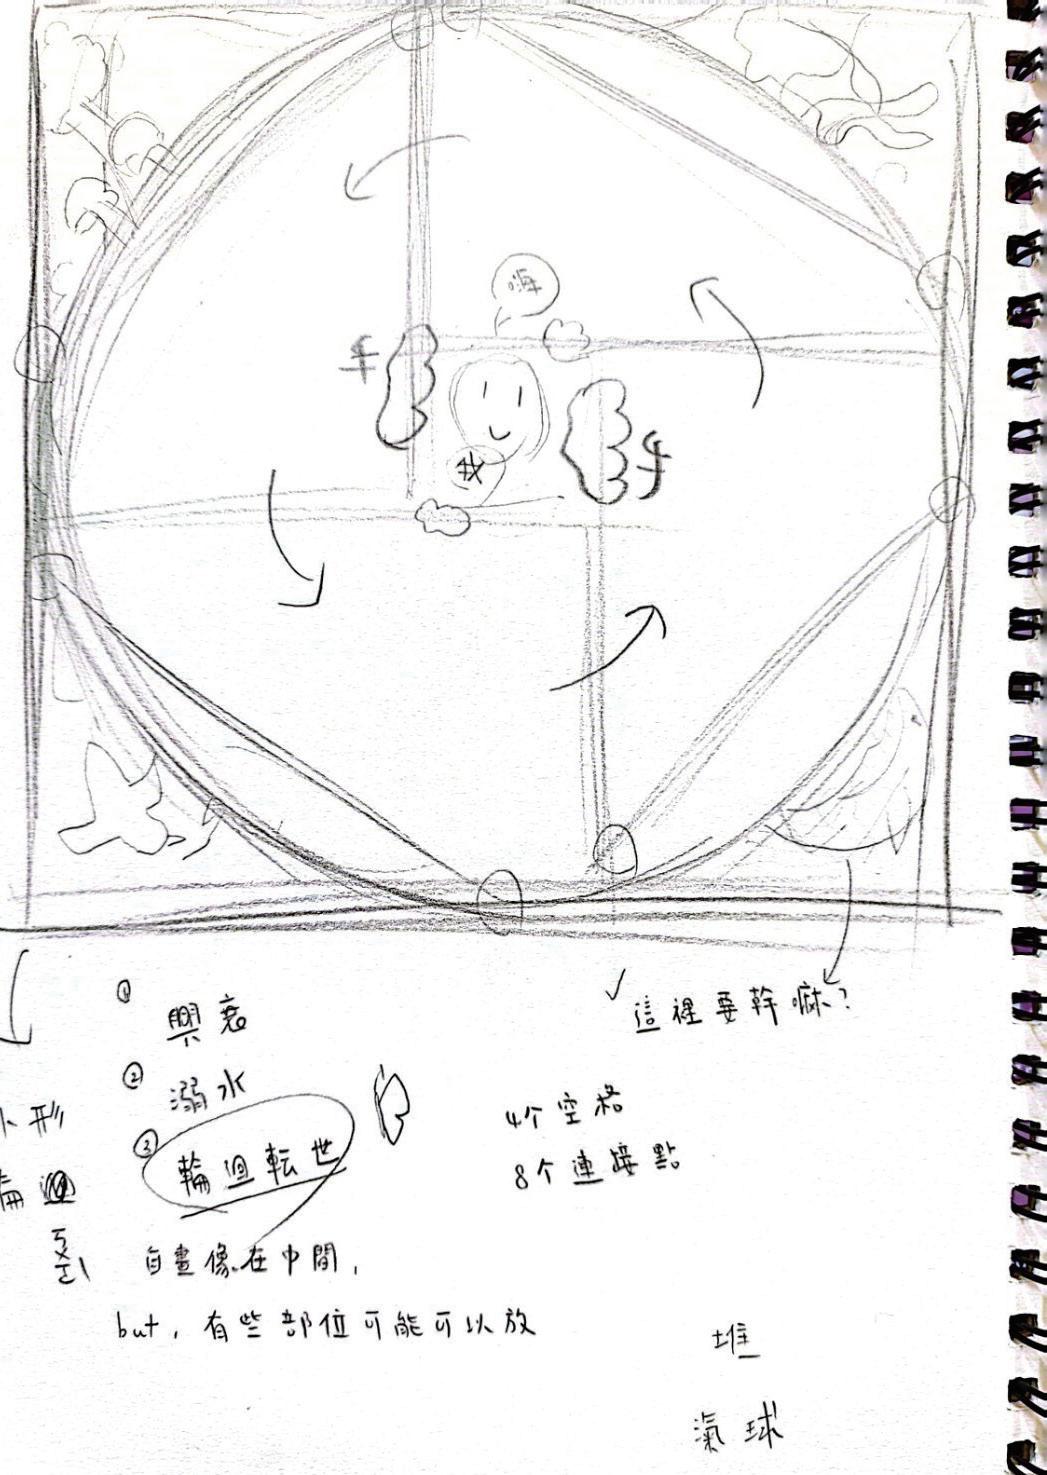 嗨
手
手
我
①
興衰
這裡要幹嘛?
② 溺水
③ 輪迴転世
4个空格
8个連接點
外形
輪迴
ㄎㄨㄟˋ
自畫像在中間,
but, 有些部位可能可以放
堆
氣球